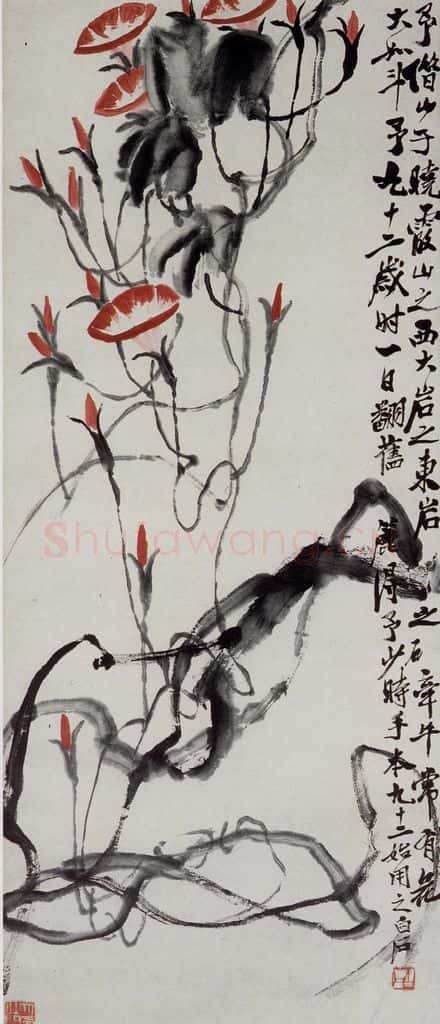 予借山于曉霞山之西大岩之東岩之石牽牛常有花
大如斗予九十二歲时一日翻舊簏得予少時手本九十二始用之白石
Shufawang.cn